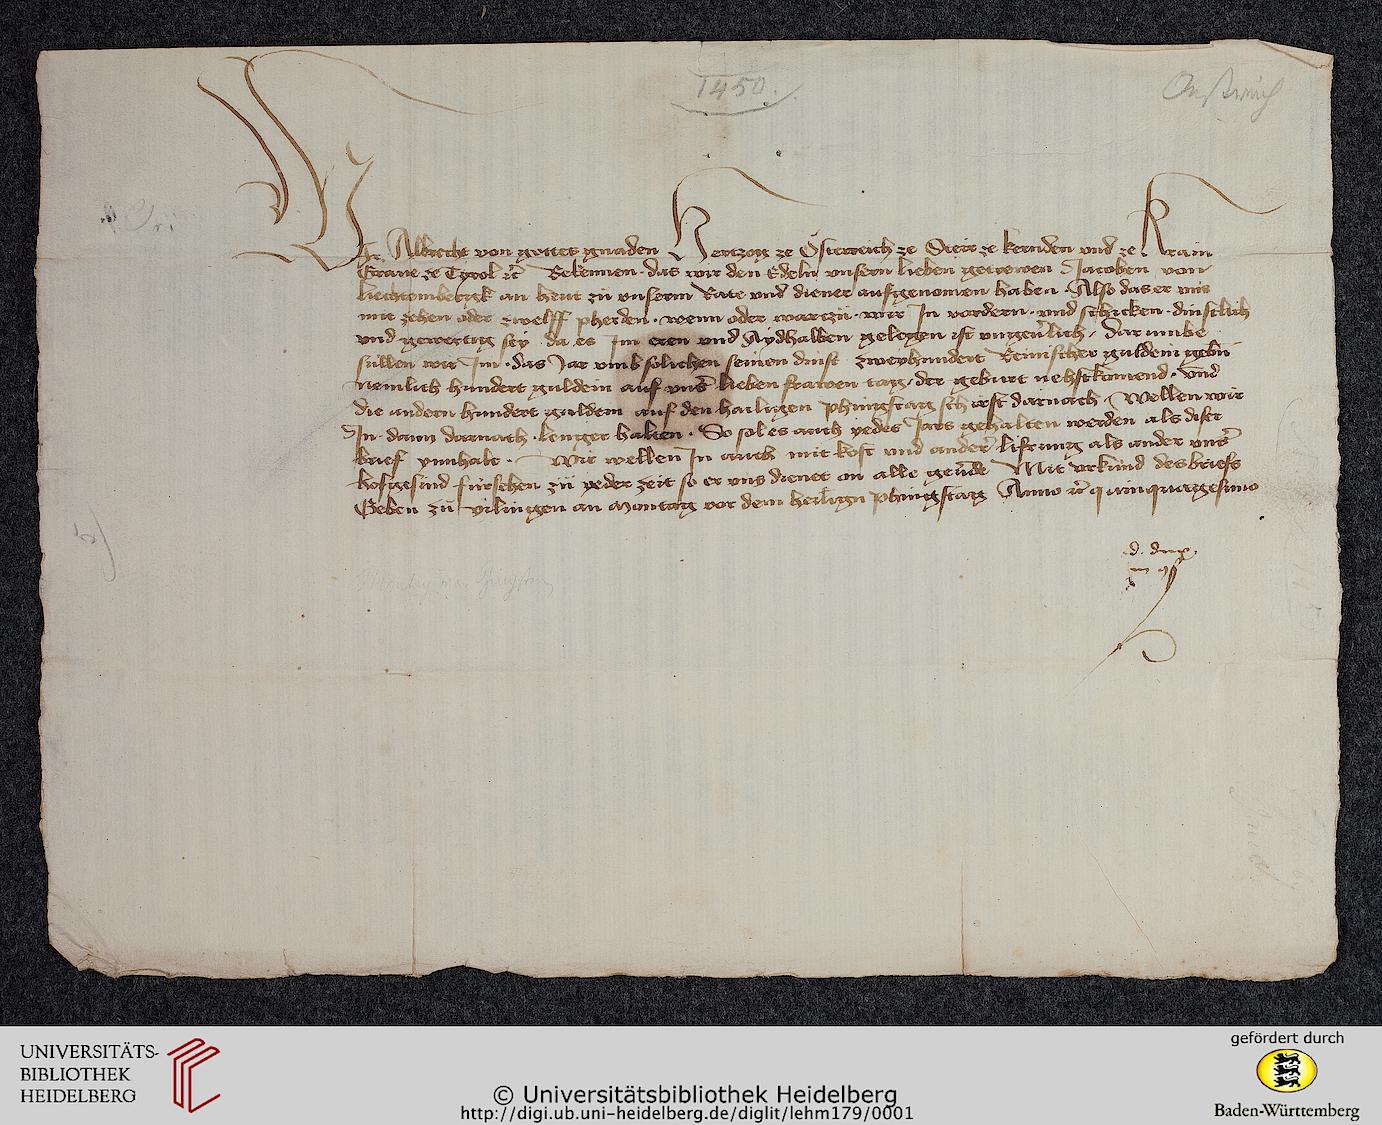 1450.
Wir Albrecht von gottes gnaden Hertzog ze Österreich ze Steir ze kernden und ze Krain
Graue ze Tyrol etc Bekennen · das wir den Edeln unsern lieben getrewen Jacoben von
liechtembergk an heut zü unserm Rate und diener aufgenomen haben · Also das er uns
mit zehen oder zwelff pherden · wenn oder wartzü · wir In vordern · und schicken · dinstlich
und gewerttig sey da es Im eren und Aydhalben gelegen ist ungeuerlich · Darumbe
sullen wir Im · das Jar umb solichen seinen dinst zweyhundert Reinischer guldein gebn
nemlich hundert guldein auf unser lieben frawen tag · der geburt nehstkümend · Und
die andern hundert guldein auf den hailigen phingstag schirst darnach · Wellen wir
In · dann darnach · lenger halten · So sol es auch yedes Jars gehalten werden als diser
brief ynnhalt · Wir wellen In auch mit kost und ander lifrung als ander unser
hofgesind fürsehen zü yeder zeit so er uns dienet an alle geuerde Mit urkund des briefs
Geben zü vilingen an Montag vor dem heiligen phingstag Anno etc quinquagesimo
d. dux
UNIVERSITÄTS-
BIBLIOTHEK
HEIDELBERG
© Universitätsbibliothek Heidelberg
http://digi.ub.uni-heidelberg.de/diglit/lehm179/0001
gefördert durch
Baden-Württemberg